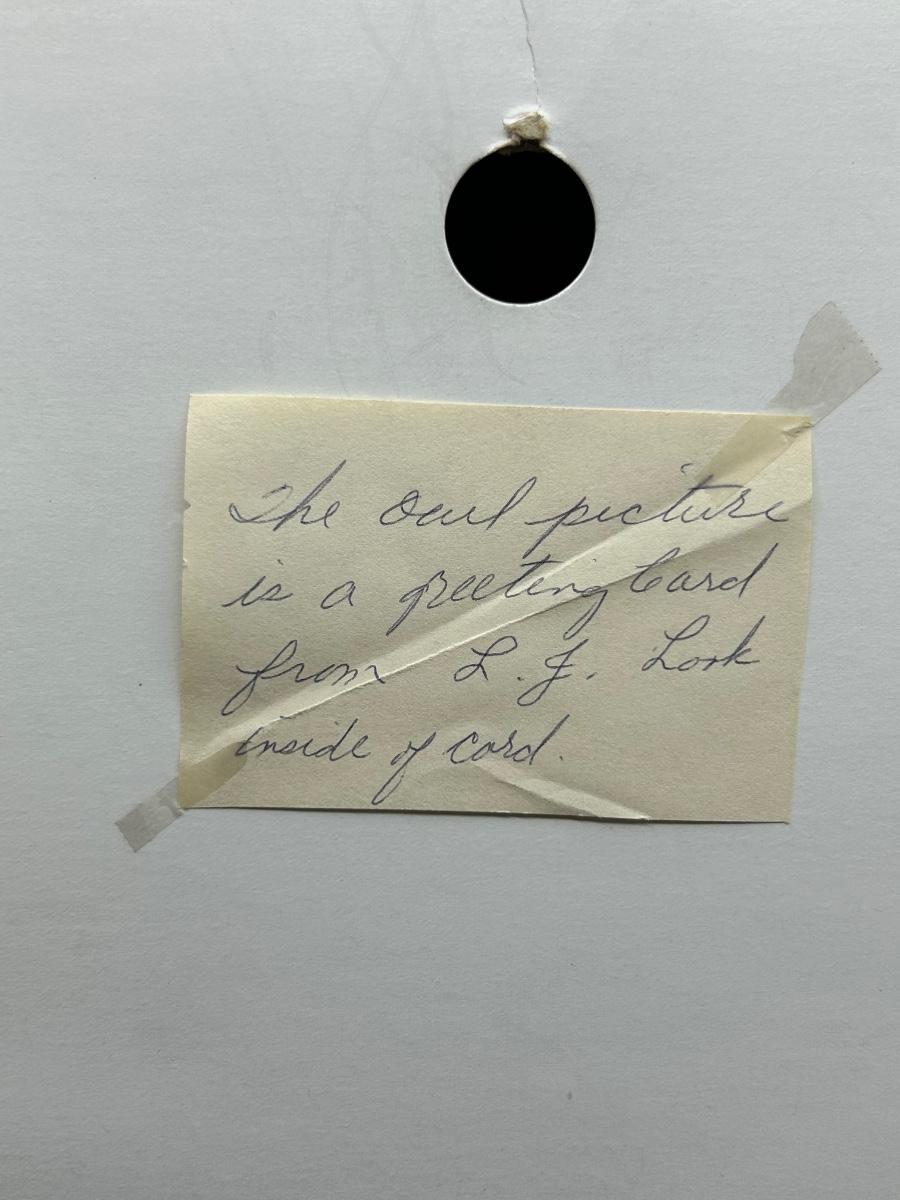 The Owl picture
is a greeting Card
from L.J. Look
inside of card.